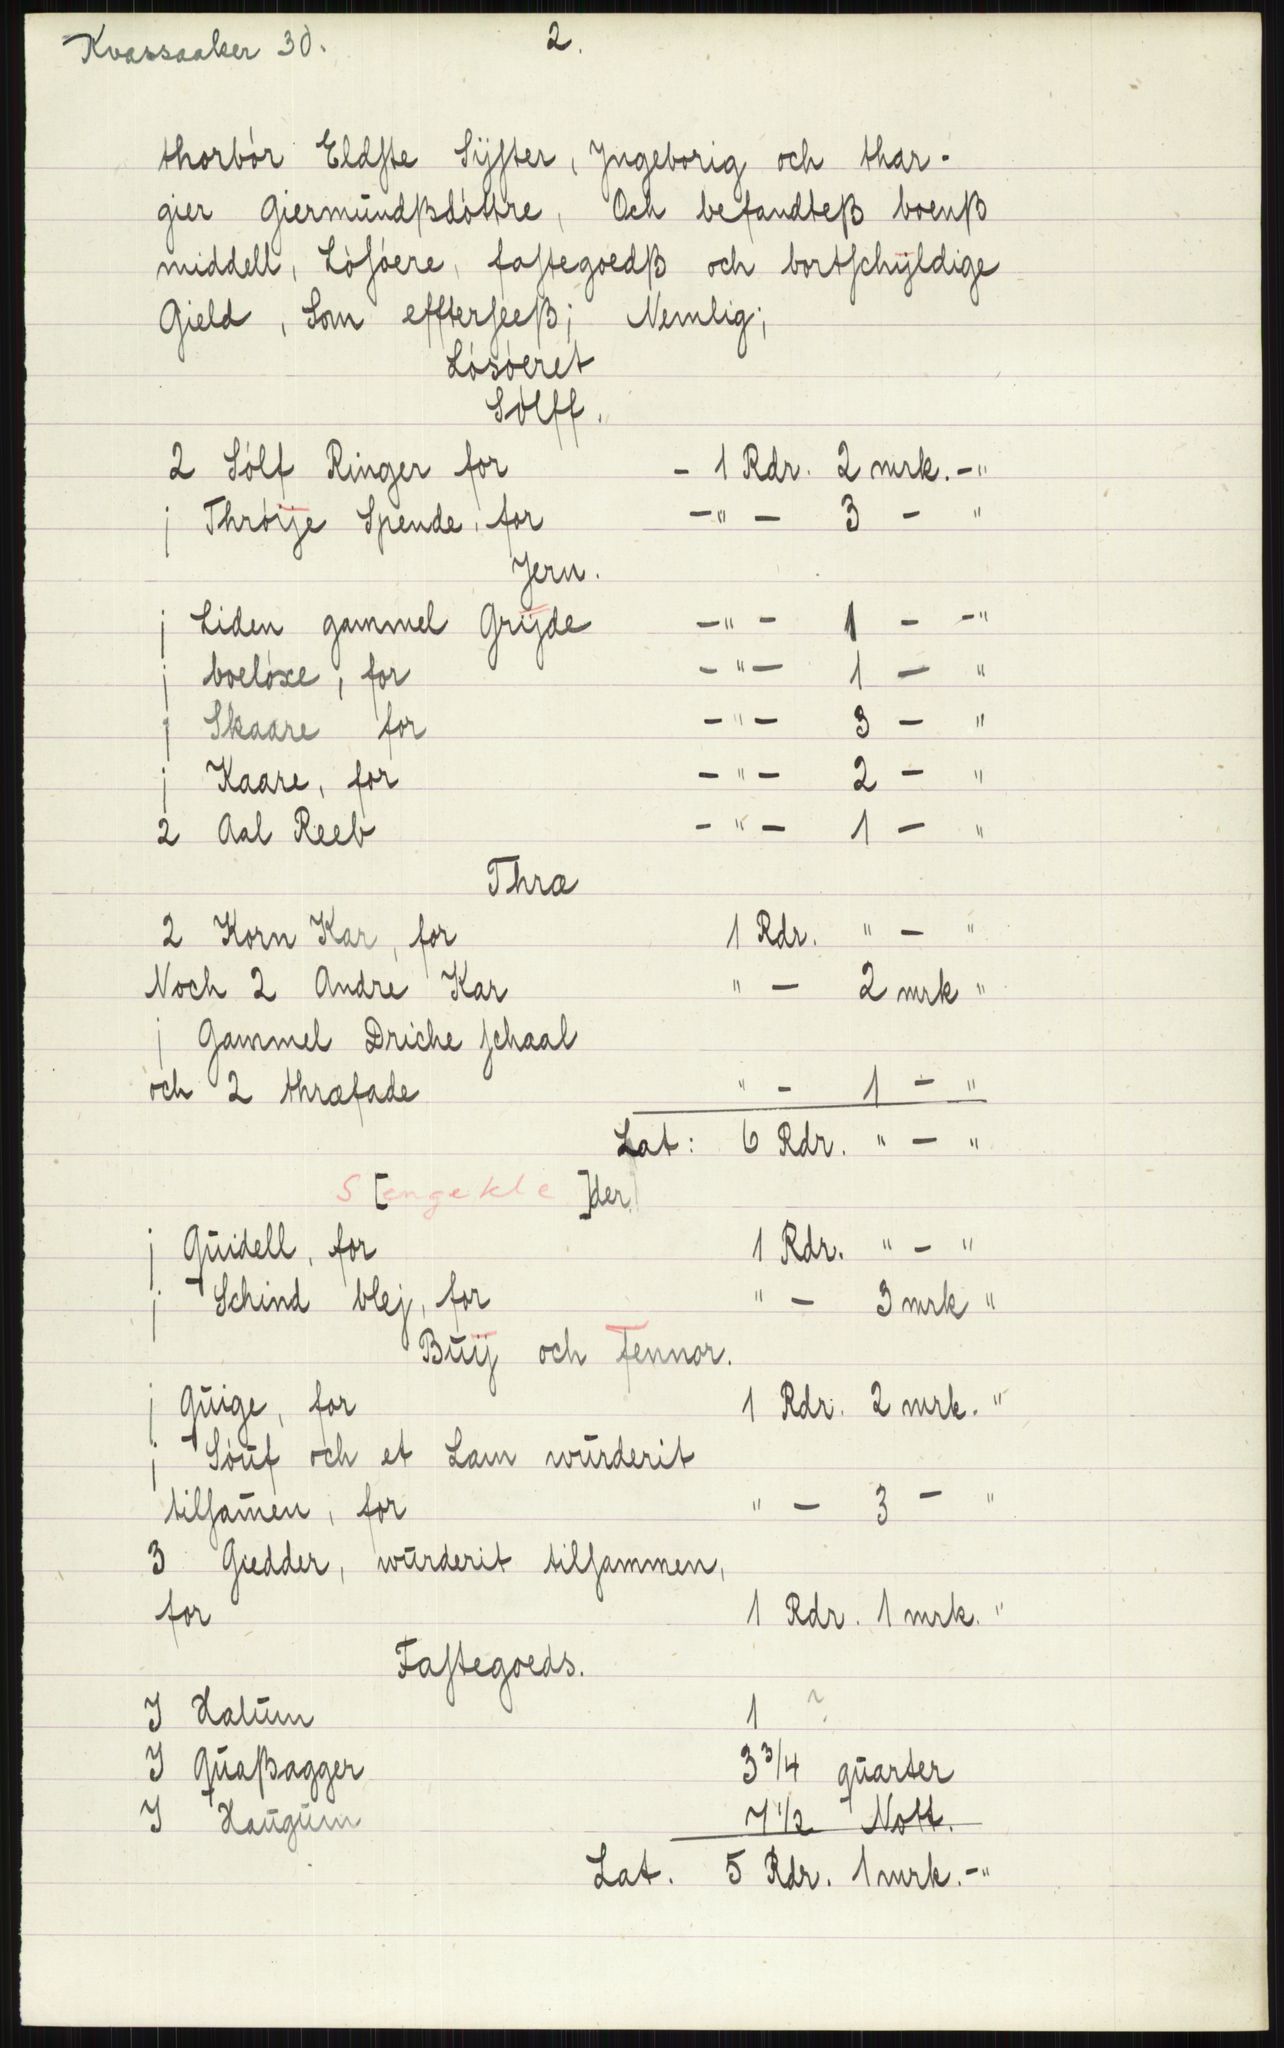 Kvassaaker 30. 2.
thorbór Eldſte Sÿſter, Jngeborig och thar-
gier Giermŭndßdóttre, Och befandteß boenß
middell, Lóſóere, faſtegoedß och bortſchÿldige
Gield, Som effterſeeß; Nemlig;
Lósóeret
Sólff.
2 Sólf Ringer for - 1 Rdr. 2 mrk. - "
j Thróÿe Spende, for - " - 3 - "
Jern.
j Liden gammel Grÿde - " - 1 - - "
j boelóxe, for - " - 1 - "
j Skaare for - " - 3 - "
j Kaare, for - " - 2 - "
2 Aal Reeb - " - 1 - "
Thræ
2 Korn Kar, for 1 Rdr. " - "
Noch 2 Andre Kar " - 2 mrk "
j Gammel Driche ſchaal
och 2 thræfade " - 1 - "
Lat: 6 Rdr. " - "
S[engekle]der
j Qŭidell, for 1 Rdr. " - "
j Schind blej, for " - 3 mrk "
Bŭÿ och Fennor.
j Qŭige, for 1 Rdr. 2 mrk. "
j Sóŭf och et Lam wŭrderit
tilſam̄en, for " - 3 - "
3 Giedder, wŭrderit tilſammen,
for 1 Rdr. 1 mrk. "
Faſtegoeds.
J Halŭm 1 ?
J Qŭaßagger 3 3/4 qŭarter
J Haŭgŭm 7 1/2 Nott.
Lat. 5 Rdr. 1 mrk. - "